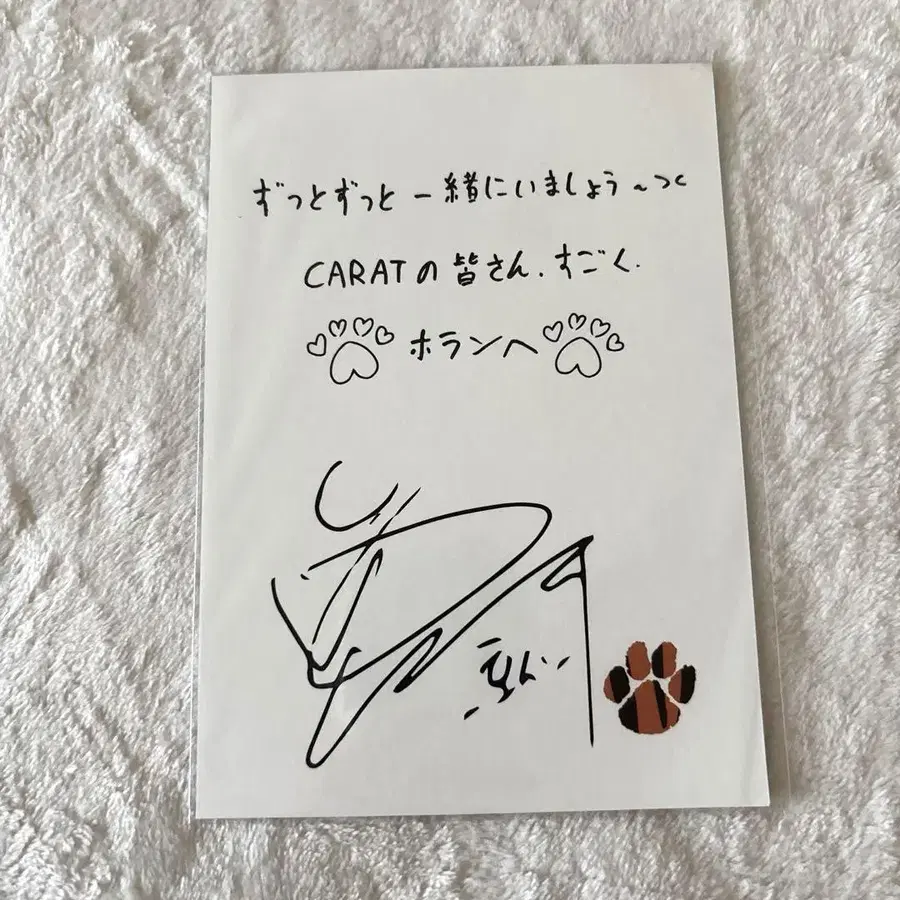 ずっとずっと一緒にいましょう~
CARATの皆さん、すごく、
ホランへ